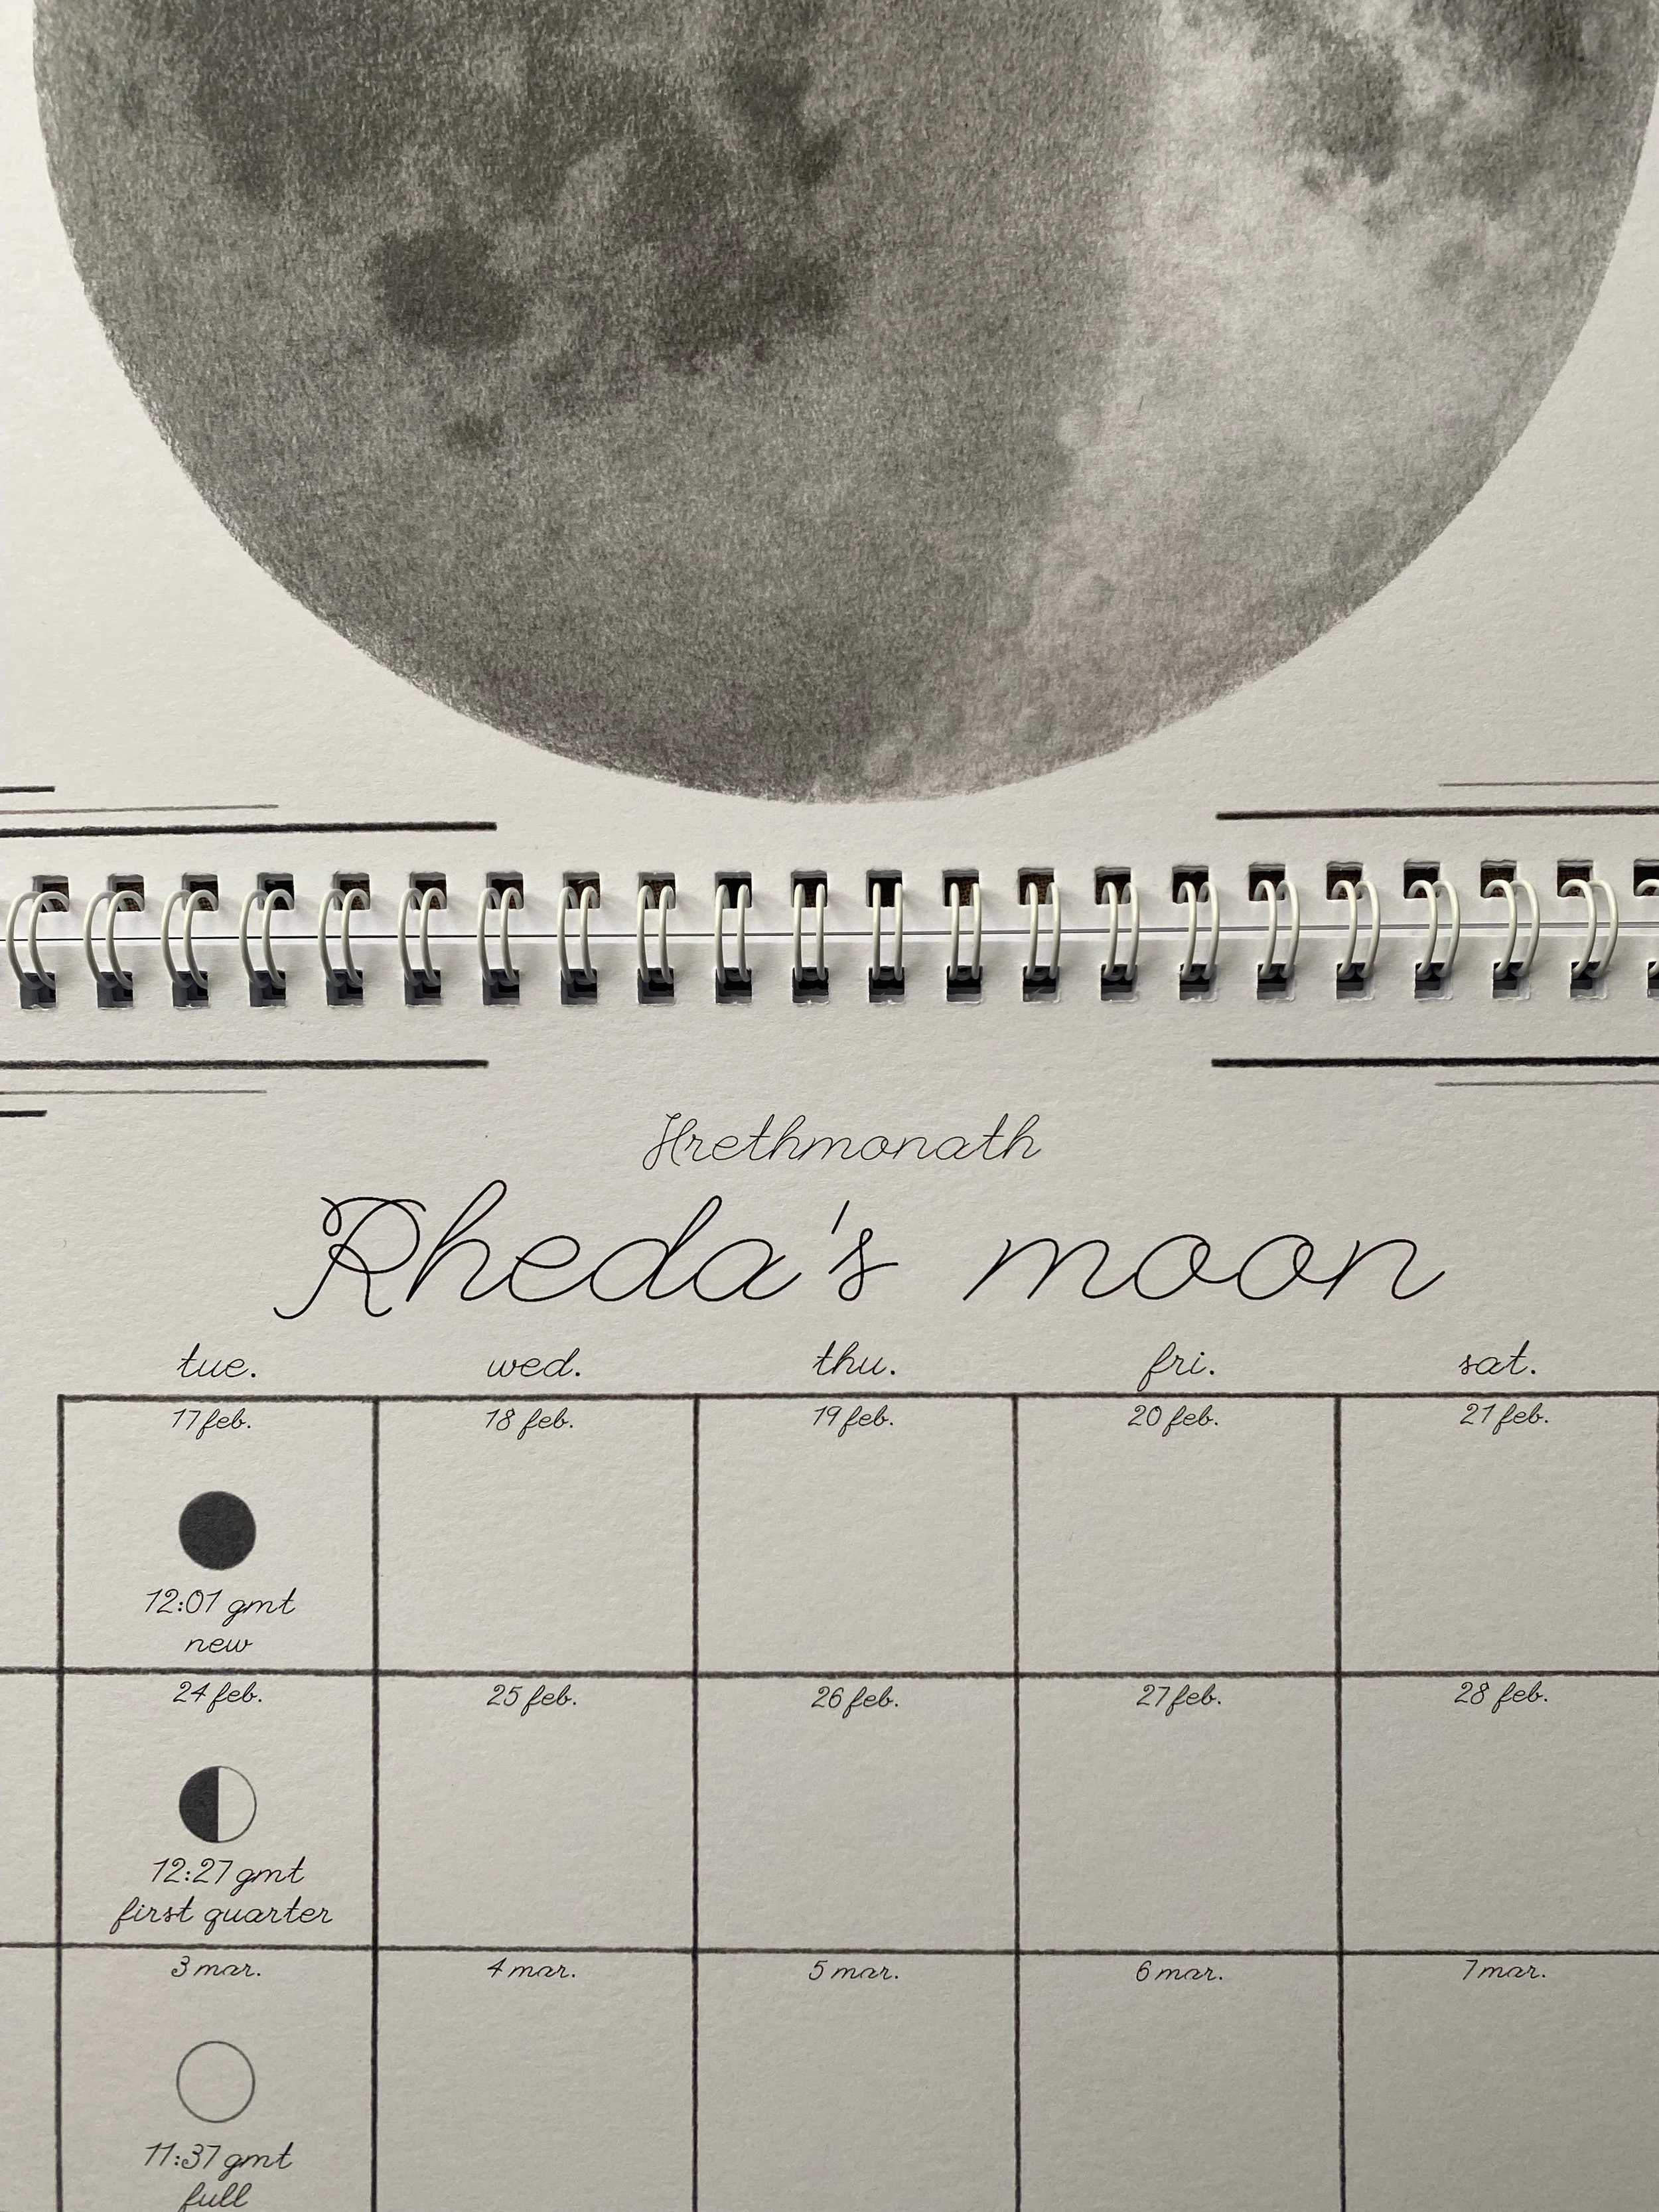 Hrethmonath
Rheda's moon
tue. wed. thu. fri. sat.
17 feb. 18 feb. 19 feb. 20 feb. 21 feb.
12:01 gmt
new
24 feb. 25 feb. 26 feb. 27 feb. 28 feb.
12:27 gmt
first quarter
3 mar. 4 mar. 5 mar. 6 mar. 7 mar.
11:37 gmt
full